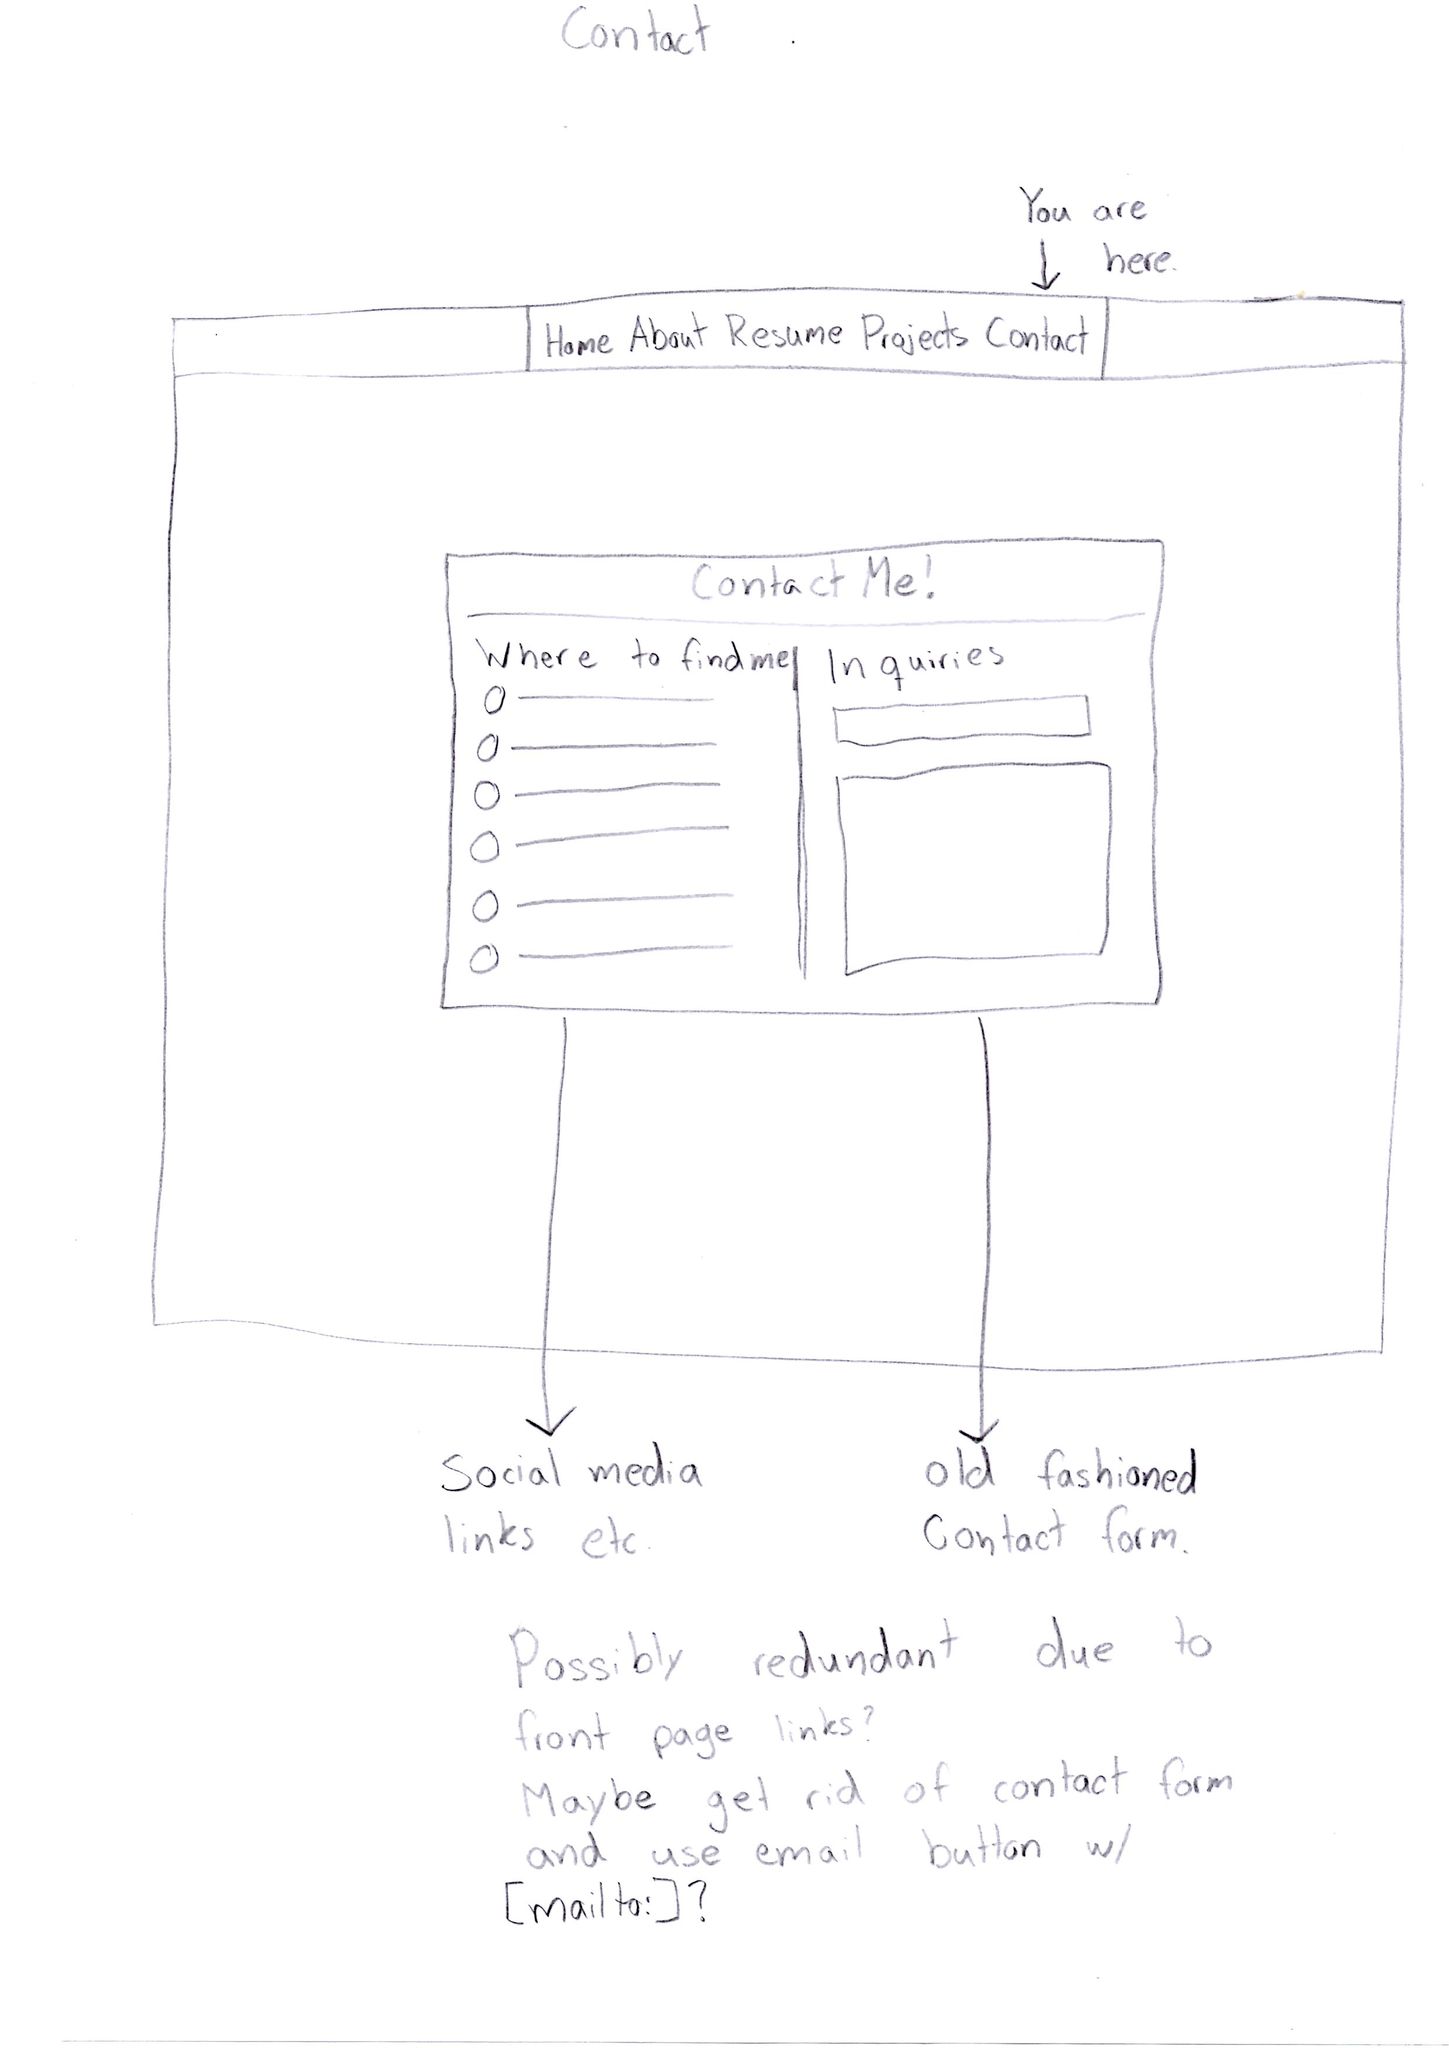 Contact
You are
here.
Home About Resume Projects Contact
Contact Me!
Where to find me
Inquiries
Social media
links etc.
old fashioned
Contact form.
Possibly redundant due to
front page links?
Maybe get rid of contact form
and use email button w/
[mailto:]?